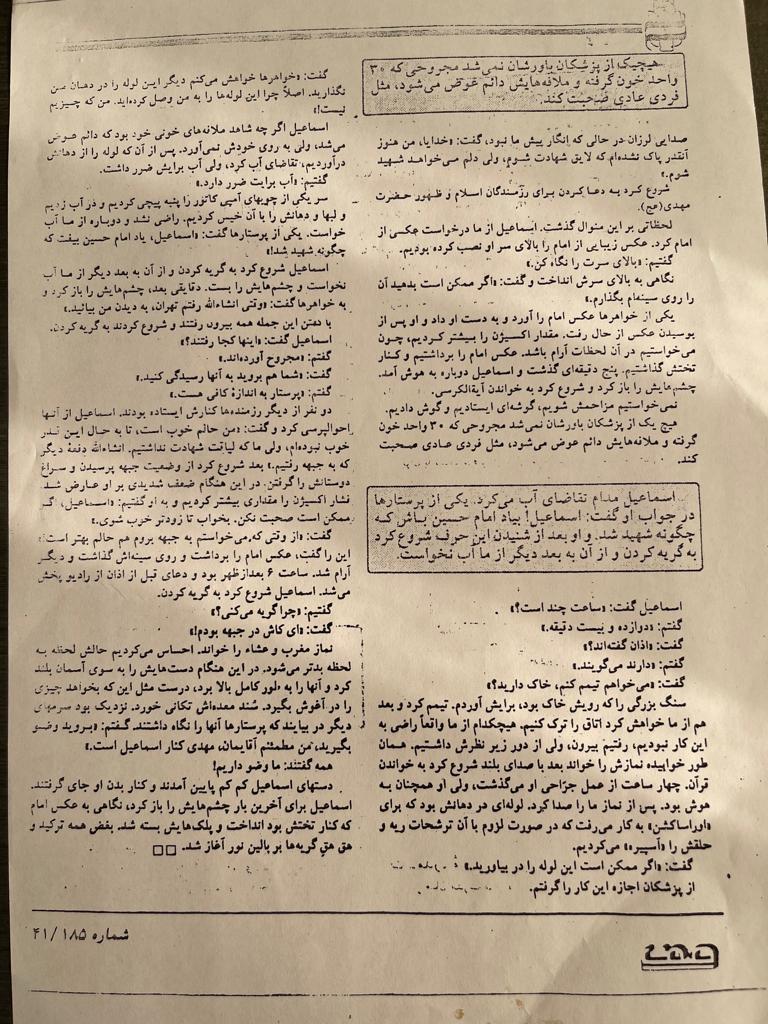 هیچیک از پزشکان باورشان نمی‌شد مجروحی که ۳۰
واحد خون گرفته و ملافه‌هایش دائم عوض می‌شود، مثل
فردی عادی صحبت کند.
صدایی لرزان در حالی که انگار پیش ما نبود، گفت: «خدایا، من هنوز
آنقدر پاک نشده‌ام که لایق شهادت شوم، ولی دلم می‌خواهد شهید
شوم.»
شروع کرد به دعا کردن برای رزمندگان اسلام و ظهور حضرت
مهدی(عج).
لحظاتی بر این منوال گذشت. اسماعیل از ما درخواست عکسی از
امام کرد. عکس زیبایی از امام را بالای سر او نصب کرده بودیم.
گفتیم: «بالای سرت را نگاه کن.»
نگاهی به بالای سرش انداخت و گفت: «اگر ممکن است بدهید آن
را روی سینه‌ام بگذارم.»
یکی از خواهرها عکس امام را آورد و به دست او داد و او پس از
بوسیدن عکس از حال رفت. مقدار اکسیژن را بیشتر کردیم، چون
می‌خواستیم در آن لحظات آرام باشد. عکس امام را برداشتیم و کنار
تختش گذاشتیم. پنج دقیقه‌ای گذشت و اسماعیل دوباره به هوش آمد.
چشم‌هایش را باز کرد و شروع کرد به خواندن آیةالکرسی.
نمی‌خواستیم مزاحمش شویم، گوشه‌ای ایستادیم و گوش دادیم.
هیچ یک از پزشکان باورشان نمی‌شد مجروحی که ۳۰ واحد خون
گرفته و ملافه‌هایش دائم عوض می‌شود، مثل فردی عادی صحبت
کند.
اسماعیل مدام تقاضای آب می‌کرد. یکی از پرستارها
در جواب او گفت: اسماعیل! بیاد امام حسین باش که
چگونه شهید شد. و او بعد از شنیدن این حرف شروع کرد
به گریه کردن و از آن به بعد دیگر از ما آب نخواست.
اسماعیل گفت: «ساعت چند است؟»
گفتم: «دوازده و بیست دقیقه.»
گفت: «اذان گفته‌اند؟»
گفتم: «دارند می‌گویند.»
گفت: «می‌خواهم تیمم کنم، خاک دارید؟»
سنگ بزرگی را که رویش خاک بود، برایش آوردم. تیمم کرد و بعد
هم از ما خواهش کرد اتاق را ترک کنیم. هیچکدام از ما واقعاً راضی به
این کار نبودیم، رفتیم بیرون، ولی از دور زیر نظرش داشتیم. همان
طور خوابیده نمازش را خواند بعد با صدای بلند شروع کرد به خواندن
قرآن. چهار ساعت از عمل جرّاحی او می‌گذشت، ولی او همچنان به
هوش بود. پس از نماز ما را صدا کرد. لوله‌ای در دهانش بود که برای
«اوراساکشن» به کار می‌رفت که در صورت لزوم با آن ترشحات ریه و
حلقش را «آسپیره» می‌کردیم.
گفت: «اگر ممکن است این لوله را در بیاورید.»
از پزشکان اجازه این کار را گرفتم.
گفت: «خواهرها خواهش می‌کنم دیگر این لوله را در دهان من
نگذارید. اصلاً چرا این لوله‌ها را به من وصل کرده‌اید. من که چیزیم
نیست!»
اسماعیل اگر چه شاهد ملافه‌های خونی خود بود که دائم عوض
می‌شد، ولی به روی خودش نمی‌آورد. پس از آن که لوله را از دهانش
درآوردیم، تقاضای آب کرد، ولی آب برایش ضرر داشت.
گفتیم: «آب برایت ضرر دارد.»
سر یکی از چوبهای آمپی کاتور را پنبه پیچی کردیم و در آب زدیم
و لبها و دهانش را با آن خیس کردیم. راضی نشد و دوباره از ما آب
خواست. یکی از پرستارها گفت: «اسماعیل، یاد امام حسین بیفت که
چگونه شهید شد!»
اسماعیل شروع کرد به گریه کردن و از آن به بعد دیگر از ما آب
نخواست و چشم‌هایش را بست. دقایقی بعد، چشم‌هایش را باز کرد و
به خواهرها گفت: «وقتی انشاءالله رفتم تهران، به دیدن من بیائید.»
با گفتن این جمله همه بیرون رفتند و شروع کردند به گریه کردن.
اسماعیل گفت: «اینها کجا رفتند؟»
گفتم: «مجروح آورده‌اند.»
گفت: «شما هم بروید به آنها رسیدگی کنید.»
گفتم: «پرستار به اندازهٔ کافی هست.»
دو نفر از دیگر رزمنده‌ها کنارش ایستاده بودند. اسماعیل از آنها
احوالپرسی کرد و گفت: «من حالم خوب است، تا به حال این قدر
خوب نبوده‌ام، ولی ما که لیاقت شهادت نداشتیم. انشاءالله دفعهٔ دیگر
که به جبهه رفتیم.» بعد شروع کرد از وضعیت جبهه پرسیدن و سراغ
دوستانش را گرفتن. در این هنگام ضعف شدیدی بر او عارض شد.
فشار اکسیژن را مقداری بیشتر کردیم و به او گفتیم: «اسماعیل، اگر
ممکن است صحبت نکن. بخواب تا زودتر خوب شوی.»
گفت: «از وقتی که می‌خواستم به جبهه بروم هم حالم بهتر است!»
این را گفت، عکس امام را برداشت و روی سینه‌اش گذاشت و دیگر
آرام شد. ساعت ۶ بعدازظهر بود و دعای قبل از اذان از رادیو پخش
می‌شد. اسماعیل شروع کرد به گریه کردن.
گفتیم: «چرا گریه می‌کنی؟»
گفت: «ای کاش در جبهه بودم!»
نماز مغرب و عشاء را خواند. احساس می‌کردیم حالش لحظه به
لحظه بدتر می‌شود. در این هنگام دست‌هایش را به سوی آسمان بلند
کرد و آنها را به طور کامل بالا برد، درست مثل این که بخواهد چیزی
را در آغوش بگیرد. سُند معده‌اش تکانی خورد. نزدیک بود سرمهای
دیگر در بیایند که پرستارها آنها را نگاه داشتند. گفتم: «بروید وضو
بگیرید، من مطمئنم آقایمان، مهدی کنار اسماعیل است.»
همه گفتند: ما وضو داریم!
دستهای اسماعیل کم کم پایین آمدند و کنار بدن او جای گرفتند.
اسماعیل برای آخرین بار چشم‌هایش را باز کرد، نگاهی به عکس امام
که کنار تختش بود انداخت و پلک‌هایش بسته شد. بغض همه ترکید و
هق هقِ گریه‌ها بر بالین نور آغاز شد. □□
شماره ۱۸۵ /۴۱